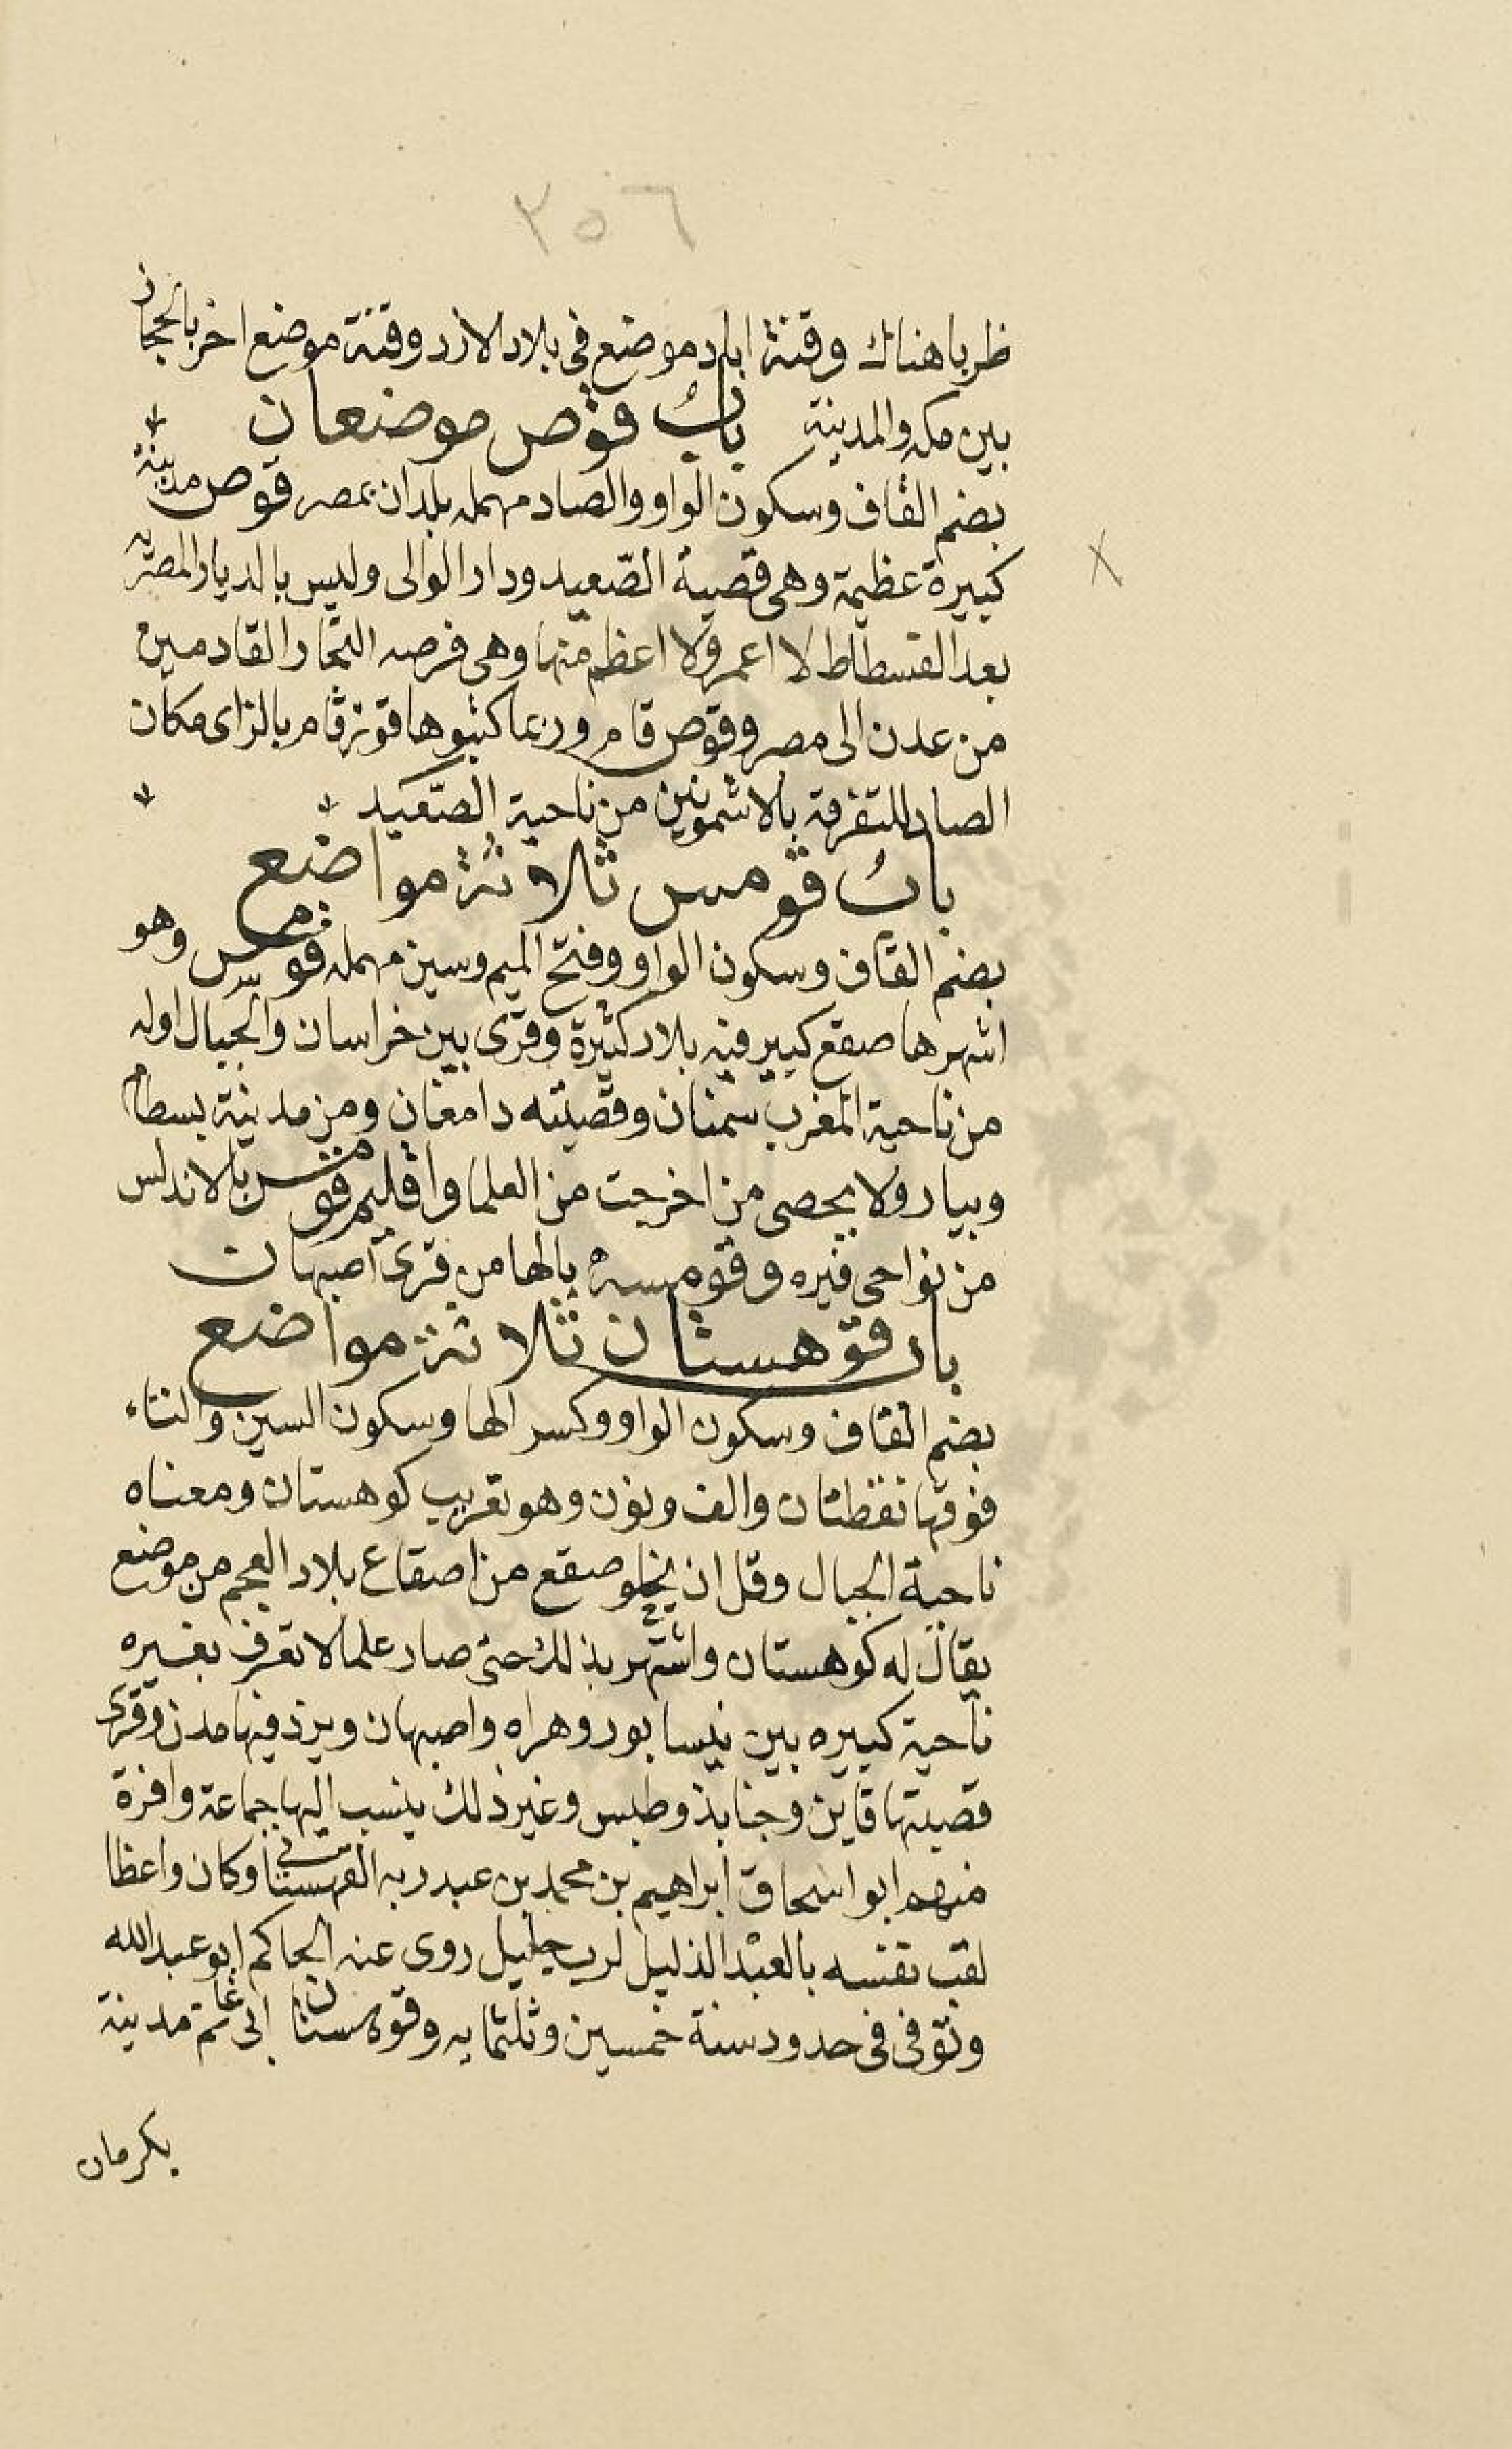 ٣٥٦
ظربا هناك وقنة اياد موضع فى بلاد الازد وقنة موضع اخر بالحجاز
بين مكه والمدينة باب قوص موضعان
بضم القاف وسكون الواو والصاد مهمله بلدان بمصر قوص مدينة
كبيرة عظيمة وهى قصبة الصّعيد ودار الوالى وليس بالديار المصريه
بعد الفسطاط لا اعمر ولا اعظم منها وهى فرضه التجار القادمين
من عدن الى مصر وقوص قام وربما كتبوها قوزقام بالزاى مكان
الصاد للتفرقة بالاشمونين من ناحية الصّعيد
باب قومس ثلاثة مواضع
بضم القاف وسكون الواو وفتح الميم وسين مهمله قومس وهو
اشهرها صقع كبير فيه بلاد كثيرة وقرى بين خراسان والجبال اوله
من ناحية المغرب سمنان وقصبته دامغان ومن مدينة بسطام
وبيار ولا يحصى من اخرجت من العلما واقليم قومس بالاندلس
من نواحى فبره وقومسه بالها من قرى اصبهان
باب قوهستان ثلاثة مواضع
بضم القاف وسكون الواو وكسر الها وسكون السين والتاء
فوقها نقطتان والف ونون وهو تعريب كوهستان ومعناه
ناحية الجبال وقل ان يخلو صقع من اصقاع بلاد العجم من موضع
يقال له كوهستان واشتهر بذلك حتى صار علما لا تعرف بغيره
ناحية كبيره بين نيسابور وهراه واصبهان ويزد فيها مدن وقرى
قصبتها قاين وجنابذ وطبس وغير ذلك ينسب اليها جماعة وافرة
منهم ابو اسحاق ابراهيم بن محمد بن عبد ربه القهستانى وكان واعظا
لقب نفسه بالعبد الذليل لرب جليل روى عنه الحاكم ابو عبد الله
وتوفى فى حدود سنة خمسين وثلثمايه وقوهستان ابى غانم مدينة
بكرمان